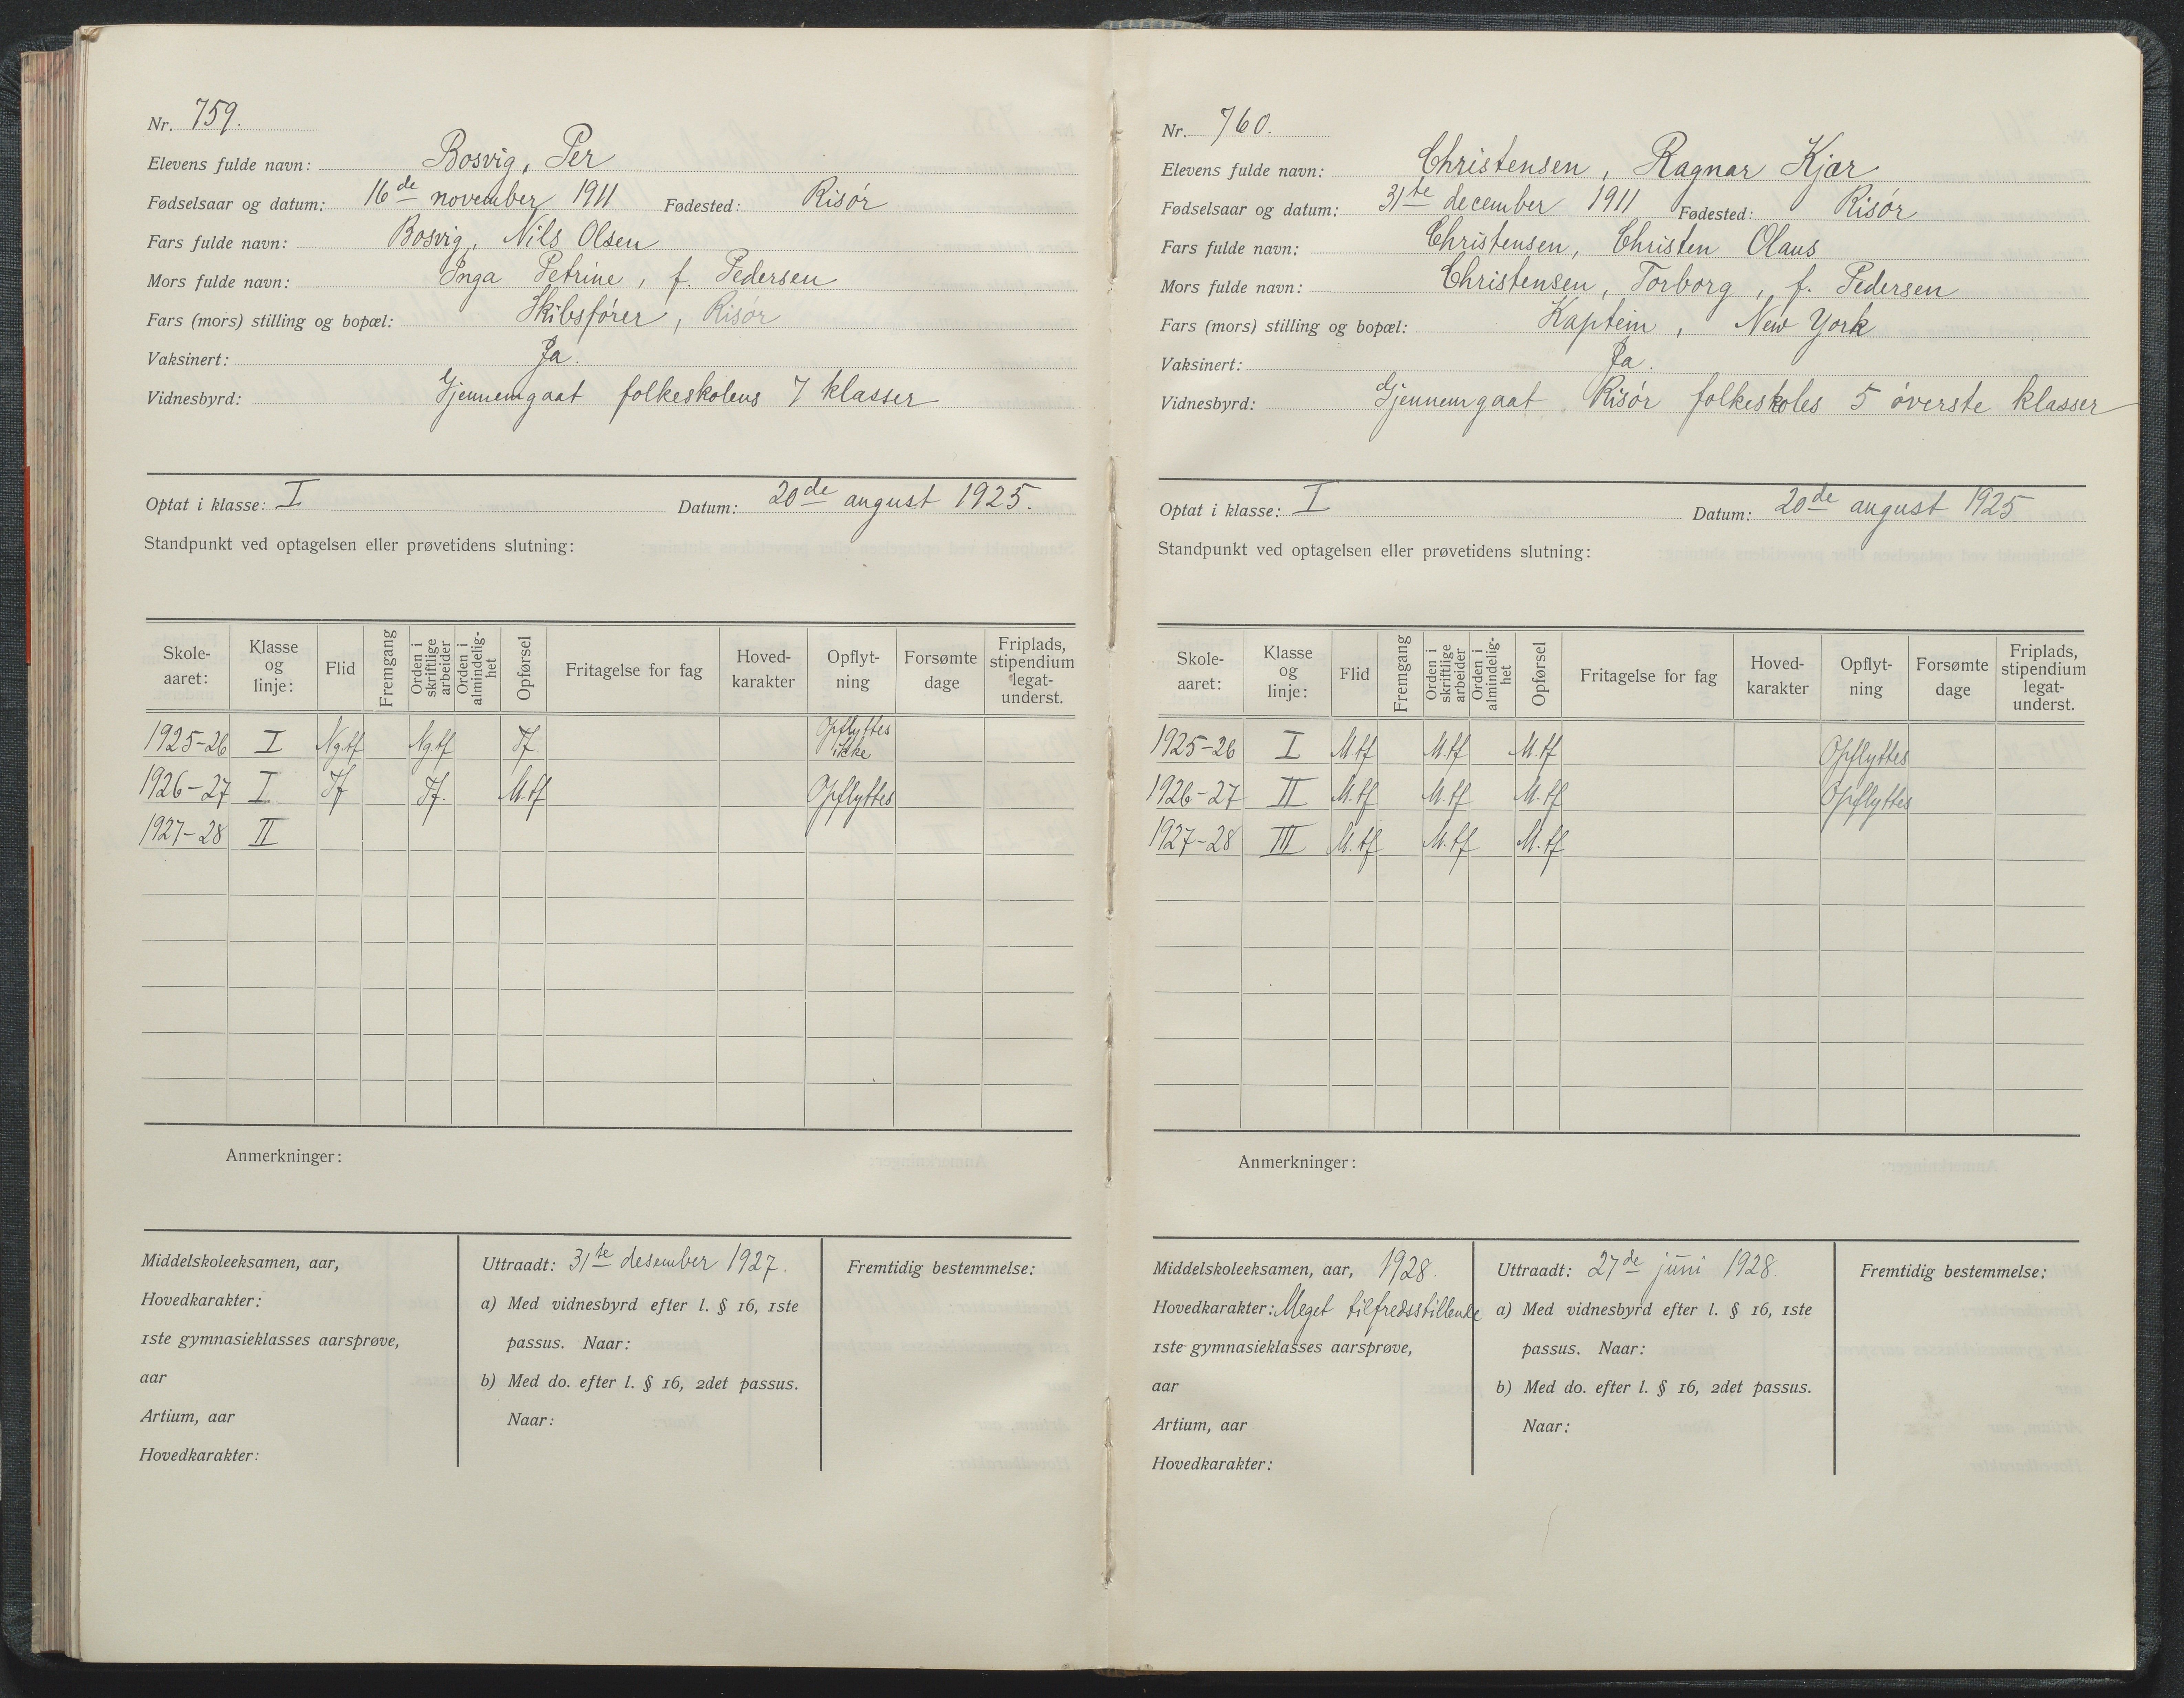 Nr. 759.
Elevens fulde navn: Bosvig, Per
Fødselsaar og datum: 16de november 1911 Fødested: Risör
Fars fulde navn: Bosvig, Nils Olsen
Mors fulde navn: Inga Petrine, f. Pedersen
Fars (mors) stilling og bopæl: Skibsförer, Risör
Vaksinert: Ja.
Vidnesbyrd: Gjennemgaat folkeskolens 7 klasser
Optat i klasse: I Datum: 20de august 1925.
Standpunkt ved optagelsen eller prøvetidens slutning:
Skole-aaret: Klasse og linje: Flid Fremgang Orden i skriftlige arbeider Orden i almindelig-het Opførsel Fritagelse for fag Hoved-karakter Opflyt-ning Forsømte dage Friplads, stipendium legat-underst.
1925-26 I Ng.tf Ng.tf Tf. Opflyttes ikke
1926-27 I Tf Tf. M.tf Opflyttes
1927-28 II
Anmerkninger:
Middelskoleeksamen, aar,
Hovedkarakter:
1ste gymnasieklasses aarsprøve,
aar
Artium, aar
Hovedkarakter:
Uttraadt: 31te desember 1927.
a) Med vidnesbyrd efter l. § 16, 1ste
passus. Naar:
b) Med do. efter l. § 16, 2det passus.
Naar:
Fremtidig bestemmelse:
Nr. 760.
Elevens fulde navn: Christensen, Ragnar Kjær
Fødselsaar og datum: 31te december 1911 Fødested: Risör
Fars fulde navn: Christensen, Christen Olaus
Mors fulde navn: Christensen, Torborg, f. Pedersen
Fars (mors) stilling og bopæl: Kaptein, New York
Vaksinert: Ja.
Vidnesbyrd: Gjennemgaat Risör folkeskoles 5 överste klasser
Optat i klasse: I Datum: 20de august 1925
Standpunkt ved optagelsen eller prøvetidens slutning:
Skole-aaret: Klasse og linje: Flid Fremgang Orden i skriftlige arbeider Orden i almindelig-het Opførsel Fritagelse for fag Hoved-karakter Opflyt-ning Forsømte dage Friplads, stipendium legat-underst.
1925-26 I M.tf M.tf M.tf Opflyttes
1926-27 II M.tf M.tf M.tf Opflyttes
1927-28 III M.tf M.tf M.tf
Anmerkninger:
Middelskoleeksamen, aar, 1928.
Hovedkarakter: Meget tilfredsstillende
1ste gymnasieklasses aarsprøve,
aar
Artium, aar
Hovedkarakter:
Uttraadt: 27de juni 1928.
a) Med vidnesbyrd efter l. § 16, 1ste
passus. Naar:
b) Med do. efter l. § 16, 2det passus.
Naar:
Fremtidig bestemmelse: